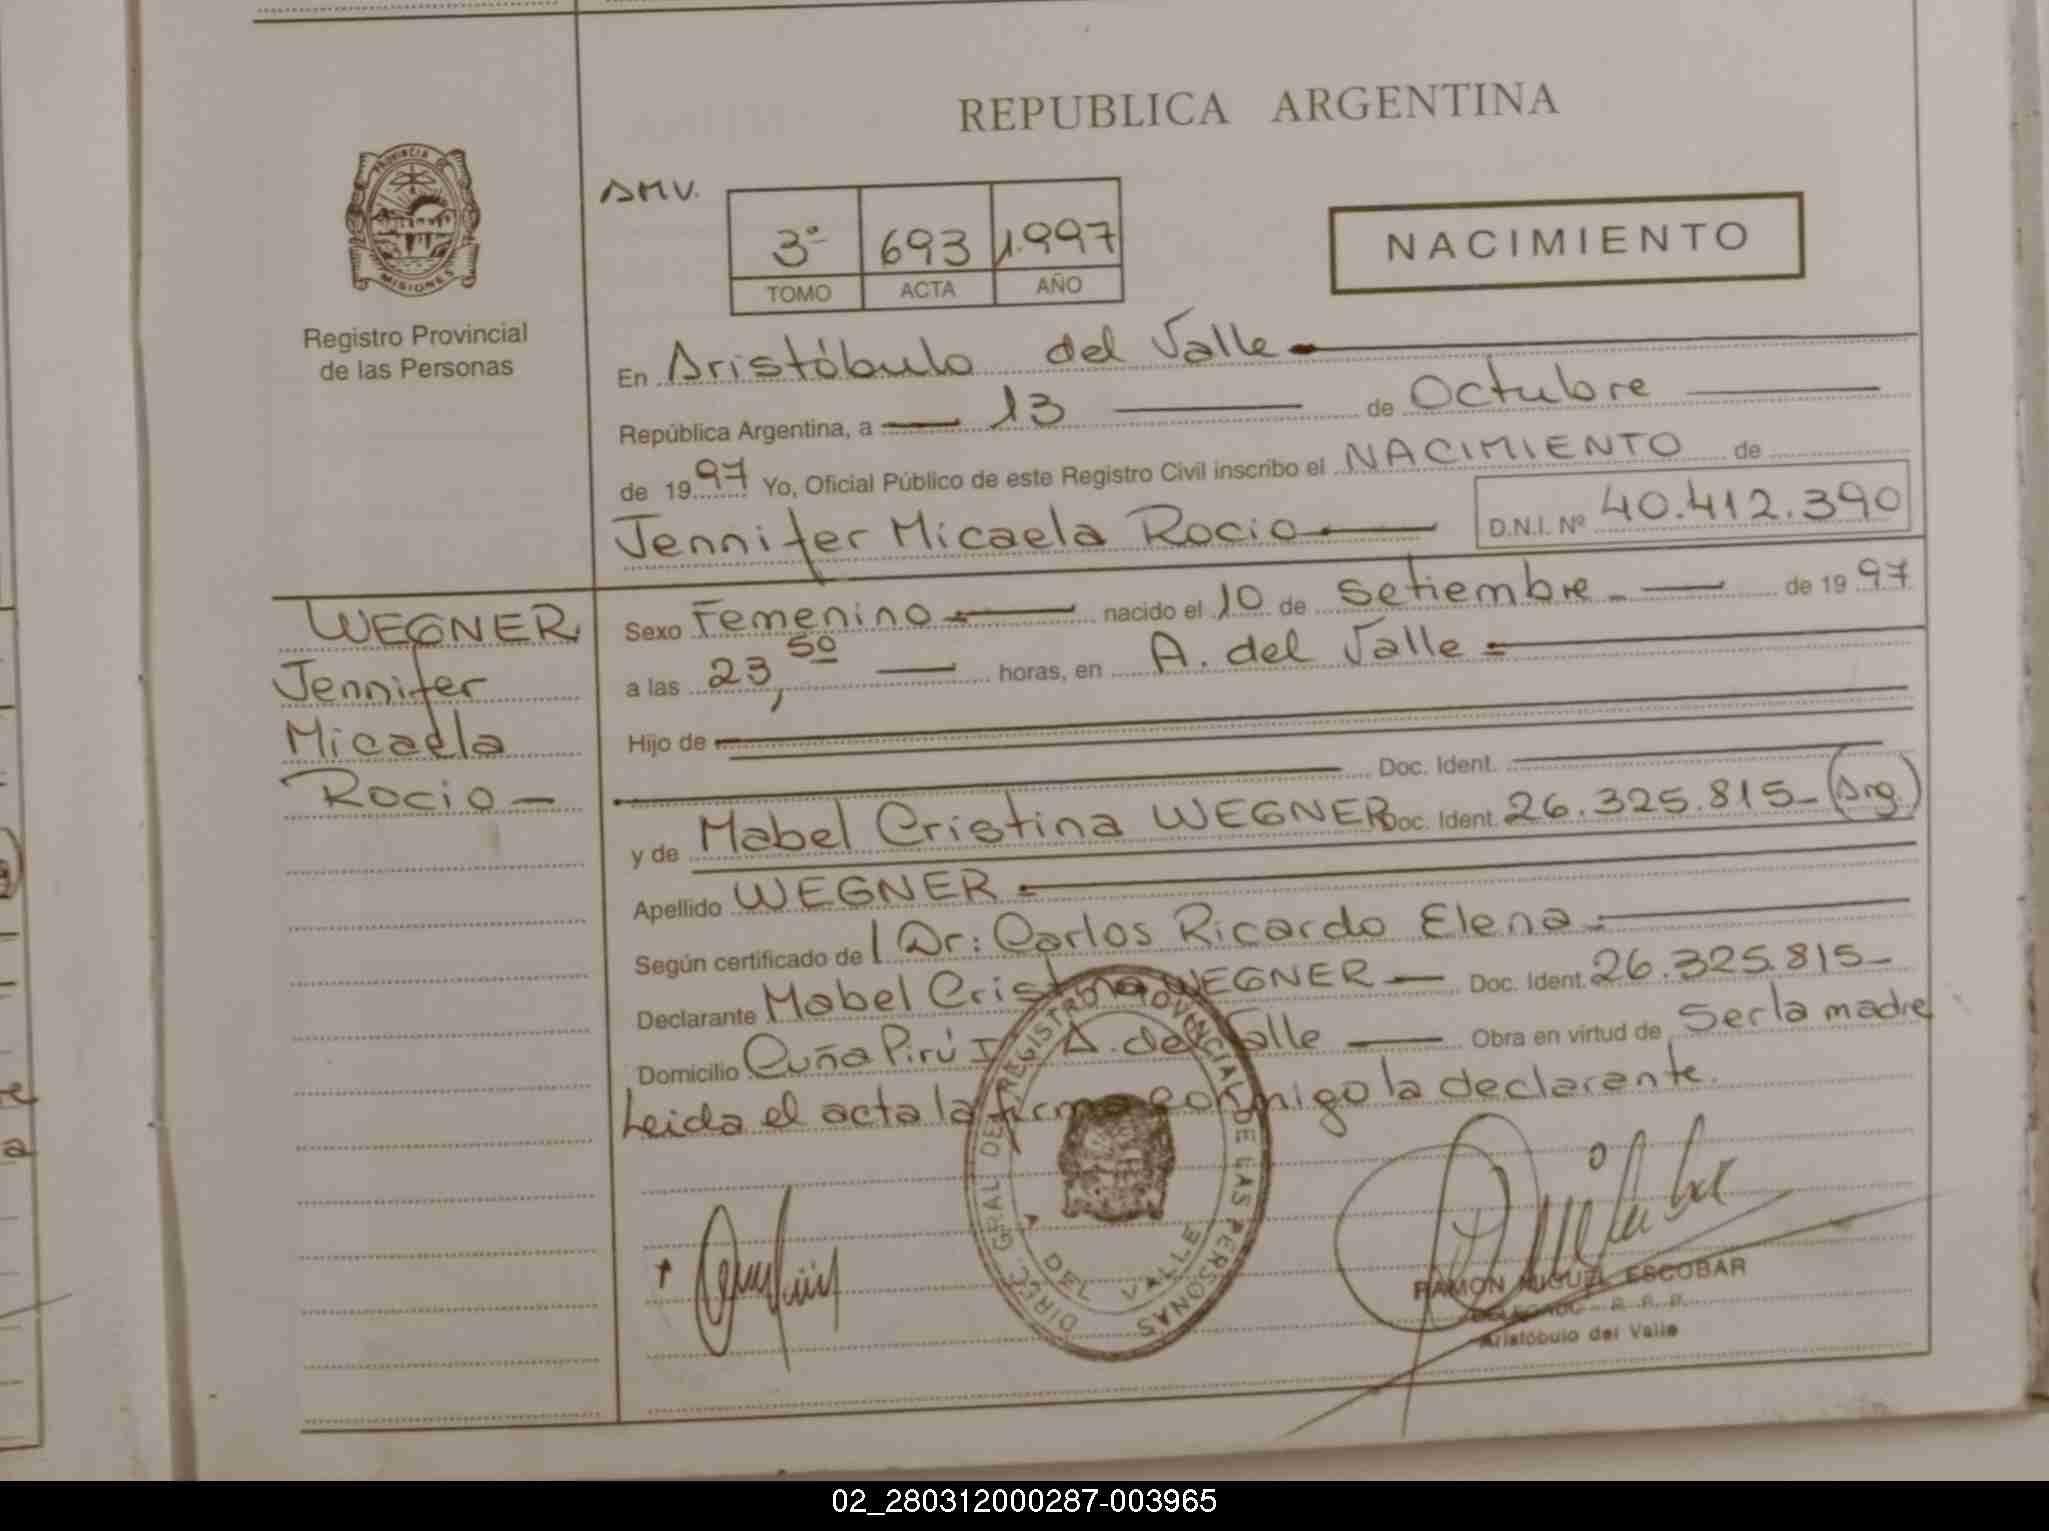 REPUBLICA ARGENTINA
PROVINCIA
MISIONES
Registro Provincial
de las Personas
AMV.
3º 693 1.997
TOMO ACTA AÑO
NACIMIENTO
En Aristóbulo del Valle
República Argentina, a 13 de Octubre
de 1997 Yo, Oficial Público de este Registro Civil inscribo el NACIMIENTO de
Jennifer Micaela Rocio D.N.I. Nº 40.412.390
WEGNER
Jennifer
Micaela
Rocio
Sexo Femenino nacido el 10 de Setiembre de 1997
a las 23,50 horas, en A. del Valle
Hijo de
Doc. Ident.
y de Mabel Cristina WEGNER Doc. Ident. 26.325.815 (Arg.)
Apellido WEGNER
Según certificado de Dr: Carlos Ricardo Elena
Declarante Mabel Cristina WEGNER Doc. Ident. 26.325.815
Domicilio Cuña Pirú I A. del Valle Obra en virtud de Ser la madre
Leida el acta la firma conmigo la declarante.
DIREC. GRAL DEL REGISTRO PROVINCIAL DE LAS PERSONAS
DEL VALLE
RAMON MIGUEL ESCOBAR
DELEGADO - R. P. P.
Aristóbulo del Valle
02_280312000287-003965